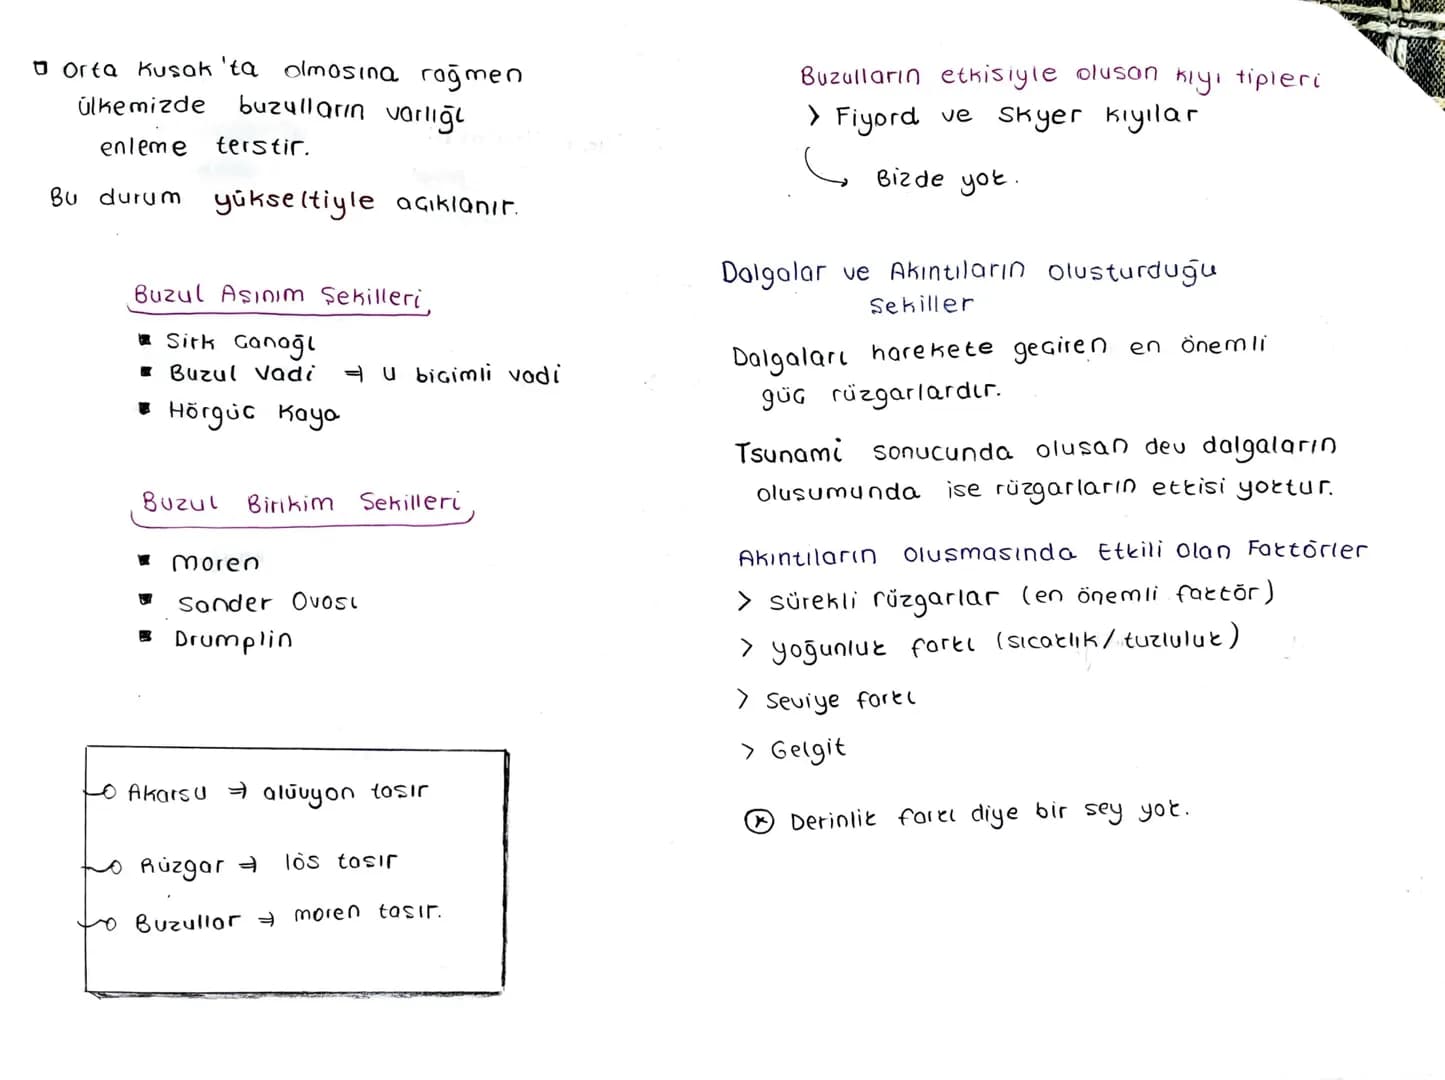 Orta Kuşak'ta olmasına rağmen
ülkemizde buzulların varlığı
enleme terstir.
Bu durum yükseltiyle açıklanır.
Buzul Aşınım Şekilleri
Sirk Çanağı
Buzul Vadi ⇒ U biçimli vadi
Hörgüç Kaya
Buzul Birikim Şekilleri
Moren
Sander Ovası
Drumplin
Akarsu ⇒ alüvyon taşır
Rüzgar ⇒ lös taşır
Buzullar ⇒ moren taşır.
Buzulların etkisiyle oluşan kıyı tipleri
> Fiyord ve Skyer kıyılar
Bizde yok.
Dalgalar ve Akıntıların oluşturduğu
Şekiller
Dalgaları harekete geçiren en önemli
güç rüzgarlardır.
Tsunami sonucunda oluşan dev dalgaların
oluşumunda ise rüzgarların etkisi yoktur.
Akıntıların Oluşmasında Etkili Olan Faktörler
> sürekli rüzgarlar (en önemli faktör)
> yoğunluk farkı (sıcaklık/tuzluluk)
> Seviye farkı
> Gelgit
Derinlik farkı diye bir şey yok.